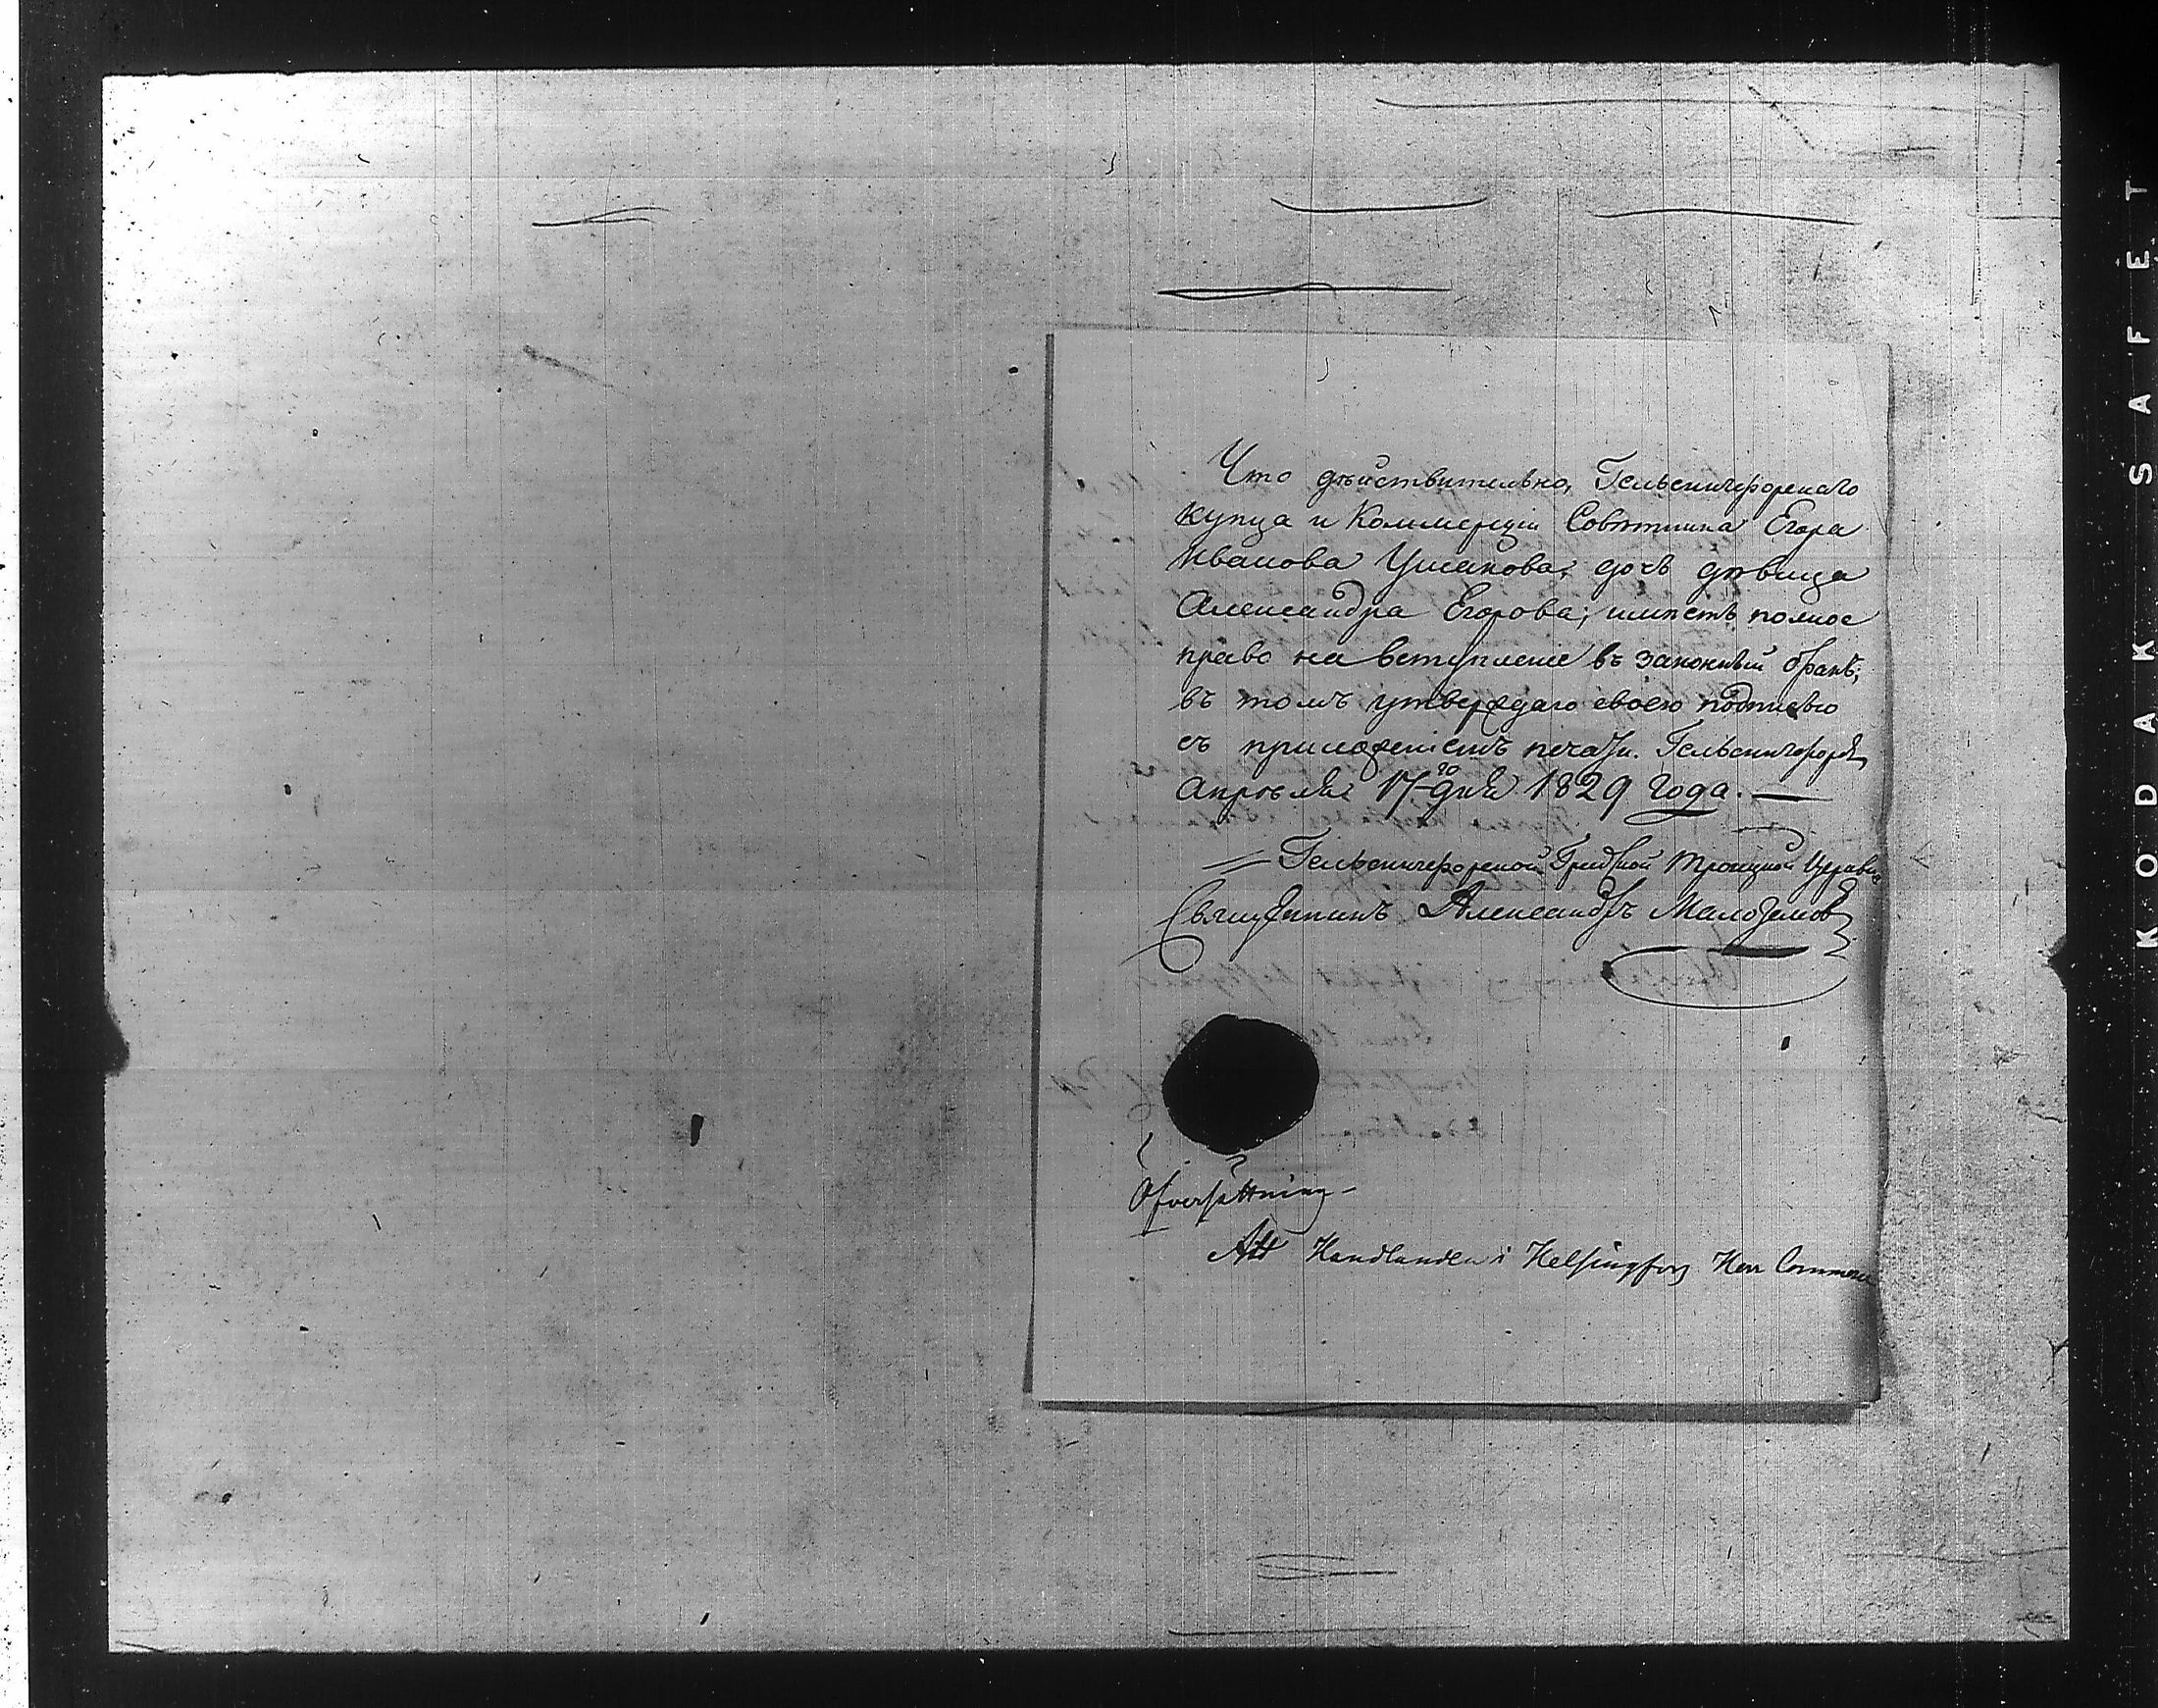 Что дѣйствительно, Гельсингфорскаго
купца и Коммерціи Совѣтника Егора
Иванова Ушакова, дочь дѣвица
Александра Егорова; имѣетъ полное
право на вступленіе въ законный бракъ;
въ томъ утверждаю своею подписью
съ приложеніемъ печати. Гельсингфорсъ,
Апрѣля 17-го дня 1829 года. —
Гельсингфорской Троицкой Церкви
Священникъ Александръ Малоземовъ
Öfversättning –
Att Handlanden i Helsingfors Herr Commerce
KODAK SAFET